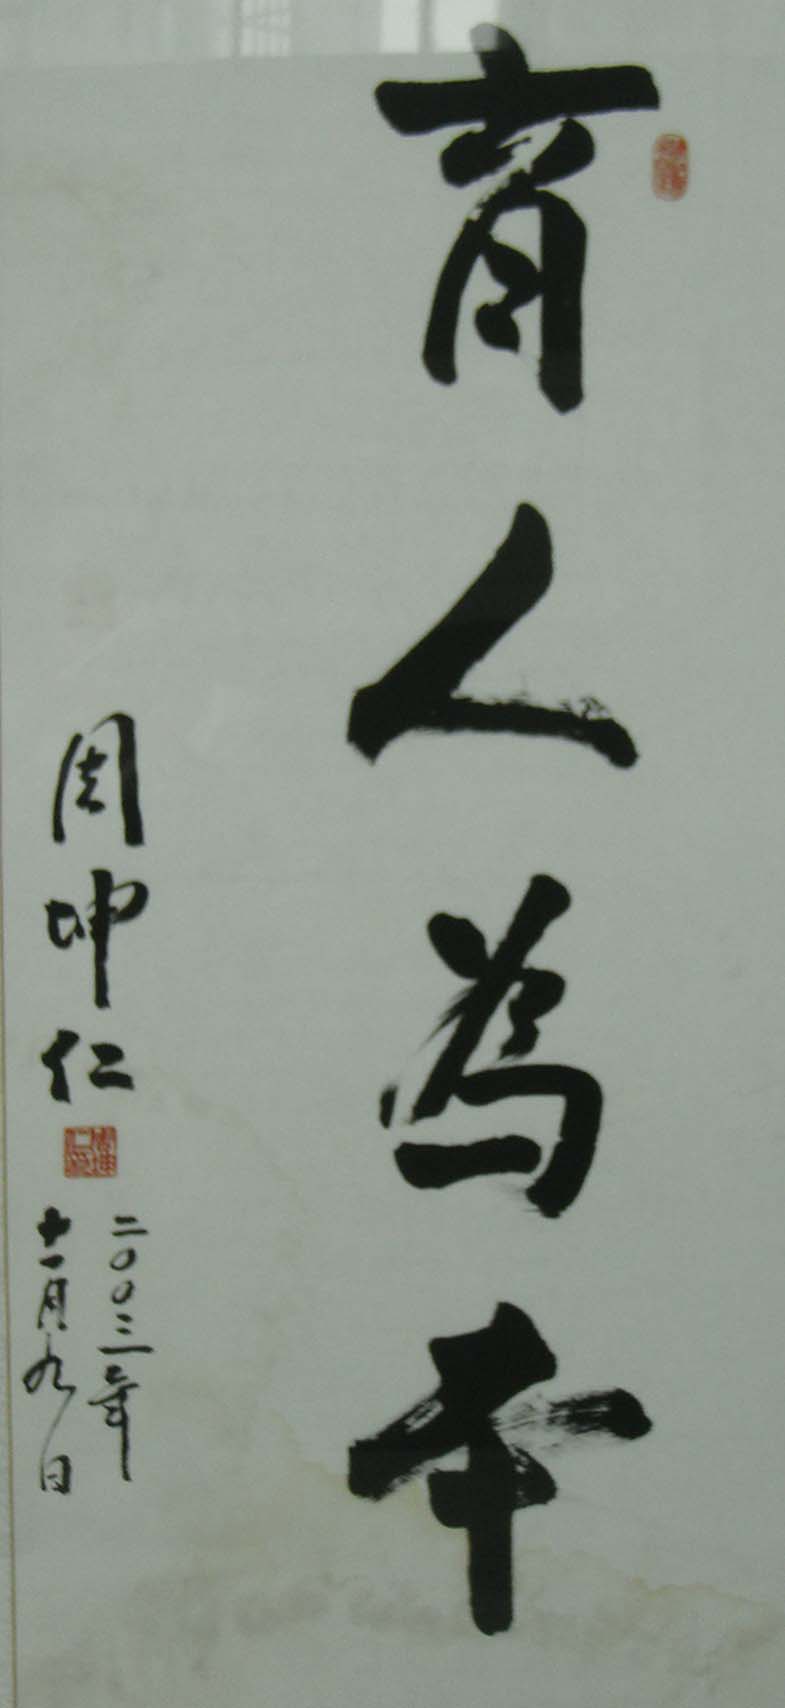 育人為本
周坤仁
二〇〇三年
十一月九日